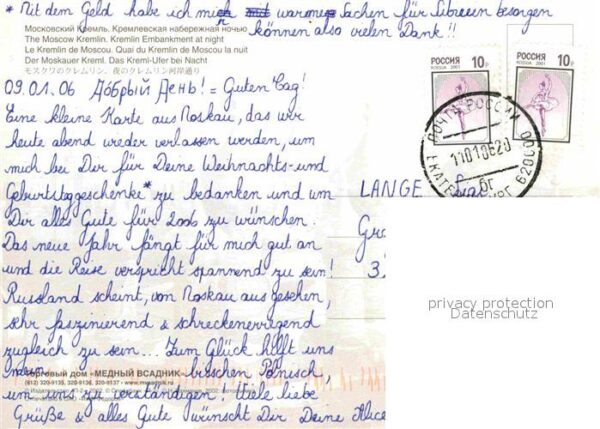 * Mit dem Geld habe ich mich mit warmen Sachen für Sibirien besorgen
können also vielen Dank !!
Московский Кремль. Кремлевская набережная ночью
The Moscow Kremlin. Kremlin Embankment at night
Le Kremlin de Moscou. Quai du Kremlin de Moscou la nuit
Der Moskauer Kreml. Das Kreml-Ufer bei Nacht
モスクワのクレムリン、夜のクレムリン河岸通り
РОССИЯ 10р
ROSSIJA 2001
РОССИЯ 10р
ROSSIJA 2001
ПОЧТА РОССИИ
ЕКАТЕ
620
09.01.06 Добрый День! = Guten Tag!
Eine kleine Karte aus Moskau, das wir
heute abend wieder verlassen werden, um
mich bei Dir für Deine Weihnachts- und
Geburtstaggeschenke * zu bedanken und um
Dir alles Gute für 2006 zu wünschen.
Das neue Jahr fängt für mich gut an
und die Reise verspricht spannend zu sein!
Russland scheint, von Moskau aus gesehen,
sehr faszinierend & schreckenerregend
zugleich zu sein... Zum Glück hilft uns
mein bisschen Polnisch,
um uns zu verständigen! Viele liebe
Grüße & alles Gute wünscht Dir Deine Alice
Торговый дом «МЕДНЫЙ ВСАДНИК»
(812) 320-9135, 320-9136, 320-9137
LANGE
Gra
3
privacy protection
Datenschutz